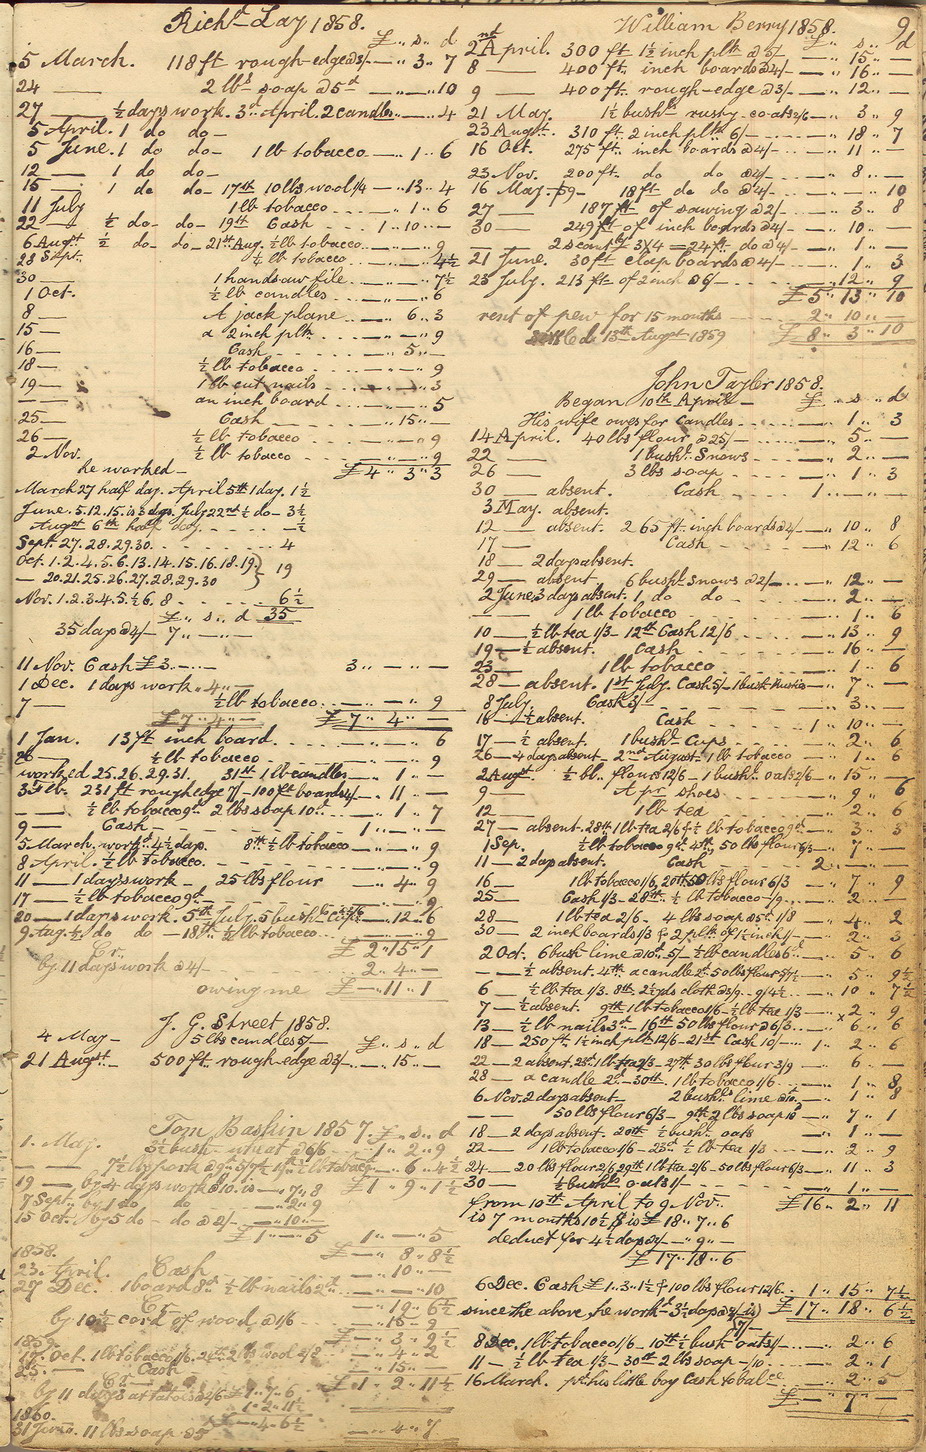 Richd Lay 1858.
£ .. s .. d
5 March. 118 ft rough-edge @3/- — .. 3 .. 7
24 — 2 lbs soap @5d — .. — .. 10
27 — ½ days work. 3d April. 2 candles — .. — .. 4
5 April. 1 do do —
5 June. 1 do do — 1 lb tobacco — .. 1 .. 6
12 — 1 do do —
15 — 1 do do — 17th 10 lbs wool 1/4 — .. 13 .. 4
11 July 1 lb tobacco — .. 1 .. 6
22 — ½ do — do — 19th Cash 1 .. 10 .. —
6 Augst ½ do — do — 21st Aug. ½ lb tobacco — .. — .. 9
28 Sept. ¼ lb tobacco — .. — .. 4½
30 — 1 handsaw file — .. — .. 7½
1 Oct. ½ lb candles — .. — .. 6
8 — A jack plane — .. 6 .. 3
15 — a 2 inch plk — .. — .. 9
16 — Cash — .. 5 .. —
18 — ½ lb tobacco — .. — .. 9
19 — 1 lb cut nails — .. — .. 3
— an inch board — .. — .. 5
25 — Cash — .. 15 .. —
26 — ½ lb tobacco — .. — .. 9
2 Nov. ½ lb tobacco — .. — .. 9
he worked — £ 4 .. 3 .. 3
March 27 half day. April 5th 1 day. 1½
June. 5. 12. 15. is 3 days. July 22nd ½ do — 3½
Augst 6th half day. — ½
Sept. 27. 28. 29. 30. 4
Oct. 1. 2. 4. 5. 6. 13. 14. 15. 16. 18. 19. } 19
— 20. 21. 25. 26. 27. 28. 29. 30
Nov. 1. 2. 3. 4. 5. ½ 6. 8 6½
£ .. s .. d 35
35 days @4/- 7 .. — .. —
11 Nov. Cash £3 .. — .. — 3 .. — .. —
1 Dec. 1 days work .. 4 .. —
7 — ½ lb tobacco — .. — .. 9
£ 7 .. 4 .. — £ 7 .. 4 .. —
1 Jan. 13 ft inch board — .. — .. 6
26 — ½ lb tobacco — .. — .. 9
worked 25. 26. 29. 31. 31st 1 lb candles — .. 1 .. —
3 Feb. 231 ft rough edge 7/- 100 ft boards 4/- — .. 11 .. —
— ½ lb tobacco 9d. 2 lbs soap 10d — .. 1 .. 7
9 — Cash 1 .. — .. —
5 March. workd 4½ days. 8th ½ lb tobacco — .. — .. 9
8 April. ½ lb tobacco — .. — .. 9
11 — 1 days work — 25 lbs flour — .. 4 .. 9
17 — ½ lb tobacco 9d — .. — .. 9
20 — 1 days work. 5th July. 5 bushs — .. 12 .. 6
9 Aug. ½ do do — 18th ½ lb tobacco — .. — .. 9
Cr. £ 2 .. 15 .. 1
by 11 days work @4/- 2 .. 4 .. —
owing me £ — .. 11 .. 1
J. G. Street 1858.
4 May — 5 lbs candles 5/- £ .. s .. d
21 Augst — 500 ft rough-edge @3/- — .. 15 .. —
Tom Baskin 1857. £ .. s .. d
1. May. 3½ bush. wheat @6/6 — 1 .. 2 .. 9
— 7½ lb pork @9d 5/7½ 1st ½ lb tobac. — .. 6 .. 4½
19 — by 4 days work @1.10. is — .. 7 .. 8 £ 1 .. 9 .. 1½
7 Sept. by 1 do do — .. 2 .. 9
15 Oct. by 5 do — do @2/- — .. 10 .. —
£ 1 .. — .. 5 1 .. — .. 5
1858. £ — .. 8 .. 8½
23. April Cash — .. 10 .. —
27 Dec. 1 board 8d ½ lb nails 2d — .. — .. 10
Cr. — .. 19 .. 6½
by 10½ cord of wood @1/6 — .. 16 .. 9
1859. £ — .. 3 .. 9½
Oct. 1 lb tobacco 1/6. 2 lbs wool 2/8 — .. 4 .. 2
25. Cash — .. 15 .. —
Cr. £ 1 .. 2 .. 11½
by 11 days at @2/6 £ 1 .. 7 .. 6
1 .. 2 .. 11½
1860. — .. 4 .. 6½
31 11 lbs soap @5 — .. 4 .. 7
9
William Berry 1858.
£ .. s .. d
2nd April. 300 ft 1½ inch plk @5/- — .. 15 .. —
8 — 400 ft. inch boards @4/- — .. 16 .. —
9 — 400 ft. rough-edge @3/- — .. 12 .. —
21 May. 1½ bushs rusty-coats 2/6 — .. 3 .. 9
23 Augst. 310 ft. 2 inch plk 6/- — .. 18 .. 7
16 Oct. 275 ft. inch boards @4/- — .. 11 .. —
23 Nov. 200 ft. do do @4/- — .. 8 .. —
16 May. 59 — 18 ft do do @4/- — .. — .. 10
27 — 187 ft of sawing @2/- — .. 3 .. 8
30 — 249 ft of inch boards @4/- — .. 10 .. —
— 2 scantlg 3X4 = 24 ft. do @4/- — .. 1 .. —
21 June. 30 ft clap boards @4/- — .. 1 .. 3
23 July. 213 ft of 2 inch @6/- — .. 12 .. 9
£ 5 .. 13 .. 10
rent of pew for 15 months 2 .. 10 .. —
15th Augst 1859 £ 8 .. 3 .. 10
John Tayler 1858.
Began 10th April — £ .. s .. d
His wife owes for candles — .. 1 .. 3
14 April. 40 lbs flour @25/- — .. 5 .. —
22 — 1 bushl Snows — .. 2 .. —
26 — 3 lbs soap — .. 1 .. 3
30 — absent. Cash 1 .. — .. —
3 May. absent.
12 — absent. 265 ft. inch boards @4/- — .. 10 .. 8
17 — Cash — .. 12 .. 6
18 — 2 days absent.
29 — absent. 6 bushs Snows @2/- — .. 12 .. —
2 June. 3 days absent. 1 do do — — .. 2 .. —
— 1 lb tobacco — .. 1 .. 6
10 — ½ lb tea 1/3 — 12th Cash 12/6 — .. 13 .. 9
19 — ½ absent. Cash — .. 16 .. —
23 — 1 lb tobacco — .. 1 .. 6
28 — absent. 1st July. Cash 5/- 1 bush Rusties — .. 7 .. —
8 July. Cash 5/-
16 — ½ absent. Cash 1 .. 10 .. —
17 — ½ absent. 1 bushl Cups — .. 2 .. 6
26 — 4 days absent — 2nd August — 1 lb tobacco — .. 1 .. 6
2 Augst ½ bl. flour 12/6 — 1 bushl. oats 2/6 — .. 15 .. —
9 — A pr shoes — .. 9 .. 6
12 — 1 lb tea — .. 2 .. 6
27 — absent. 28th 1 lb tea 2/6 & ½ lb tobacco 9d — .. 3 .. 3
1 Sep. ½ lb tobacco 9d 4th 50 lbs flour 6/3 — .. 7 .. —
11 — 2 days absent. Cash 2 .. — .. —
16 — 1 lb tobacco 1/6. 20th 50 lbs flour 6/3 — .. 7 .. 9
25 — Cash 1/3 — 28th ½ lb tobacco -/9 — .. 2 .. —
28 — 1 lb tea 2/6 — 4 lbs soap @5d 1/8 — .. 4 .. 2
30 — 2 inch boards 1/3 & 2 plk of 1½ inch 1/- — .. 2 .. 3
2 Oct. 6 bush lime @10d 5/- ½ lb candles 6d — .. 5 .. 6
— ½ absent. 4th a candle 2d 50 lbs flour 5/7½ — .. 5 .. 9½
6 — ½ lb tea 1/3. 8th 2½ yds cloth @3/9 — 9/4½ — .. 10 .. 7½
7 — ½ absent. 9th 1 lb tobacco 1/6 — ½ lb tea 1/3 — x 2 .. 9
13 — ½ lb nails 3d — 16th 50 lbs flour @6/3 — .. 6 .. 6
18 — 250 ft. 1½ inch plk 12/6 — 21st Cash 10/- 1 .. 2 .. 6
22 — 2 absent. 23d 1 lb tea 2/3 — 27th 30 lbs flour 3/9 — .. 6 .. —
28 — a candle 2d — 30th 1 lb tobacco 1/6 — .. 1 .. 8
6 Nov. 2 days absent — 2 bushs lime @10d — .. 1 .. 8
— 50 lbs flour 6/3 — 9th 2 lbs soap 10d — .. 7 .. 1
18 — 2 days absent. 20th ½ bushl oats — .. 1 .. —
22 — 1 lb tobacco 1/6 — 23d ½ lb tea 1/3 — .. 2 .. 9
24 — 20 lbs flour 2/6 29th 1 lb tea 2/6 — 50 lbs flour 6/3 — .. 11 .. 3
30 — ½ bushl oats 1/- — .. 1 .. —
from 10th April to 9 Nov. £ 16 .. 2 .. 11
is 7 months 10½ $ is £ 18 .. 7 .. 6
deduct for 4½ days 2/- — .. 9 .. —
£ 17 .. 18 .. 6
6 Dec. Cash £ 1 .. 3 .. 1½ & 100 lbs flour 12/6 1 .. 15 .. 7½
since the above, he workd 3½ days @2/ is £ 17 .. 18 .. 6½
(7/-
8 Dec. 1 lb tobacco 1/6 — 10th ½ bush oats 1/- — .. 2 .. 6
11 — ½ lb tea 1/3 — 30th 2 lbs soap -/10 — .. 2 .. 1
16 March. pr his little boy Cash to balce — .. 2 .. 5
£ — .. 7 .. —